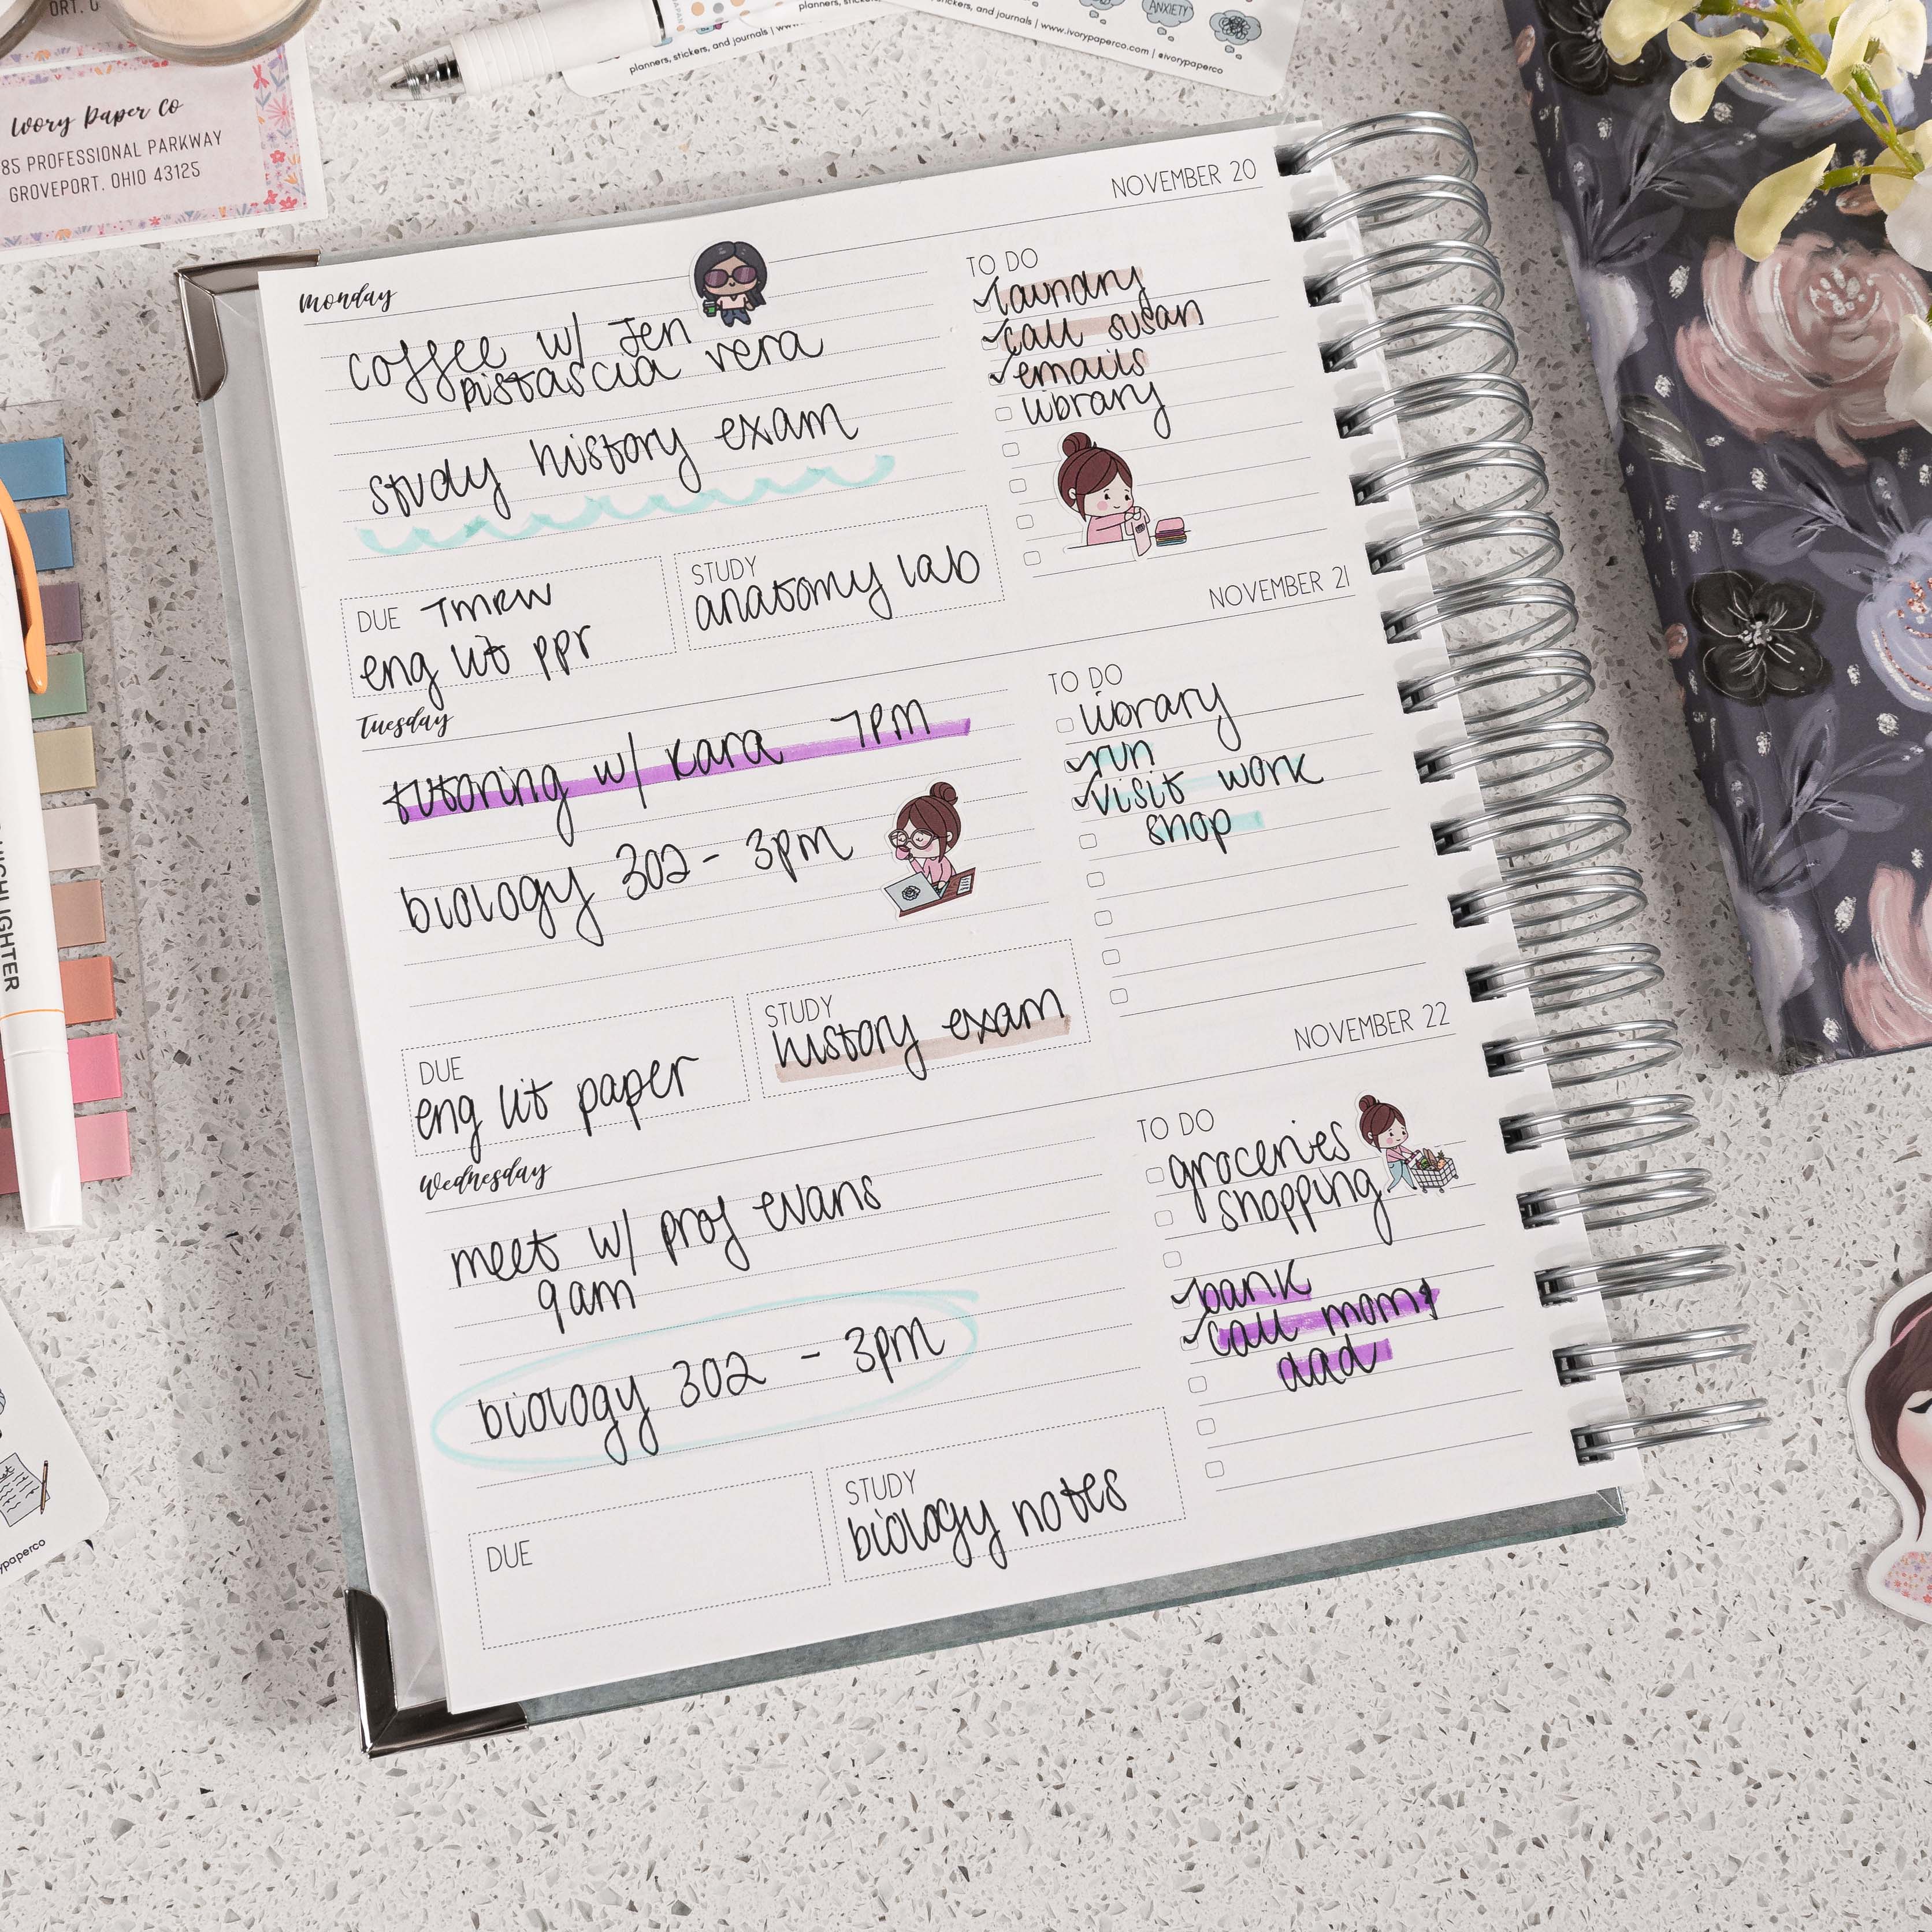 ORT. O
Ivory Paper Co
85 PROFESSIONAL PARKWAY
GROVEPORT, OHIO 43125
planners, stickers, and journals
ANXIETY
and journals | www.ivorypaperco.com | @ivorypaperco
HIGHLIGHTER
ypaperco
NOVEMBER 20
monday
coffee w/ Jen
pistascia vera
study history exam
DUE TMRW
eng lit ppr
STUDY
anatomy lab
TO DO
laundry
call susan
emails
library
NOVEMBER 21
Tuesday
tutoring w/ Kara 7PM
biology 302 - 3pm
DUE
eng lit paper
STUDY
history exam
TO DO
library
run
visit work
shop
NOVEMBER 22
Wednesday
meet w/ prof evans
9am
biology 302 - 3pm
DUE
STUDY
biology notes
TO DO
groceries
shopping
bank
call mom &
dad